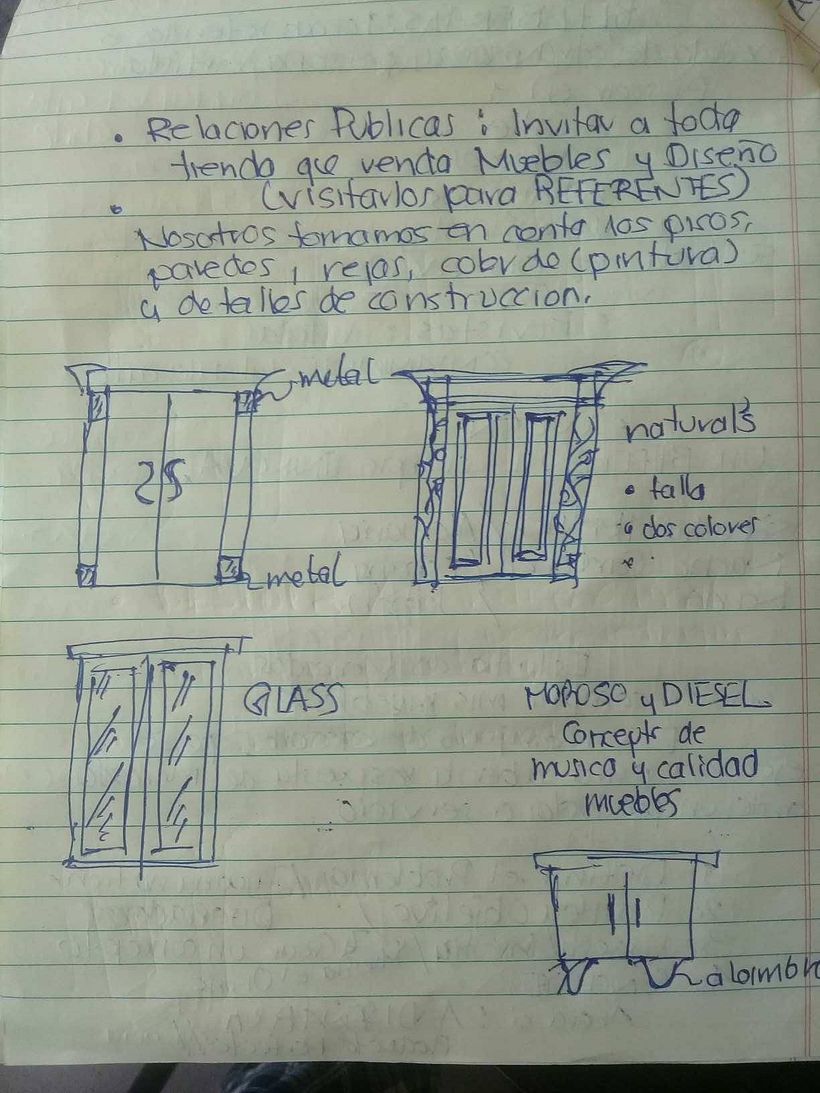 • Relaciones Publicas : Invitar a toda
tienda que venda Muebles y Diseño
• (visitarlos para REFERENTES)
Nosotros tomamos en conta los pisos,
paredes, rejas, color de (pintura)
y detalles de construccion.
metal
25
metal
naturals
• talla
• dos colores
GLASS
MOROSO y DIESEL.
Concepto de
musica y calidad
muebles